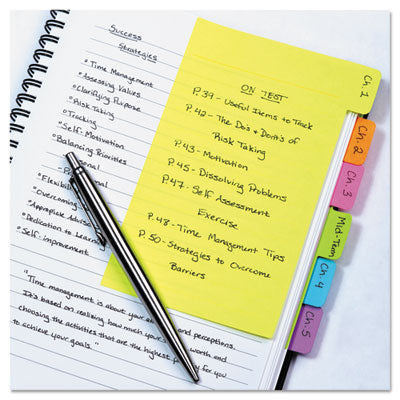 Success
Strategies
• Time Management
• Assessing Values
• Clarifying Purpose
• Risk Taking
• Tracking
• Self-Motivation
• Balancing Priorities
• Flexibil
• Overcoming
• Appropriate Advis
• Dedication to Lear
• Self-improvement
"Time management is about your and perceptions.
It's based on realizing how much your worth and
choosing the activities that are the highest for you
to achieve your goals."
ON TEST
P. 39 - Useful Items to Track
P. 42 - The Do's & Dont's of
Risk Taking
P. 43 - Motivation
P. 45 - Dissolving Problems
P. 47 - Self Assessment
Exercise
P. 48 - Time Management Tips
P. 50 - Strategies to Overcome
Barriers
Ch. 1
Ch. 2
Ch. 3
Mid-Term
Ch. 4
Ch. 5